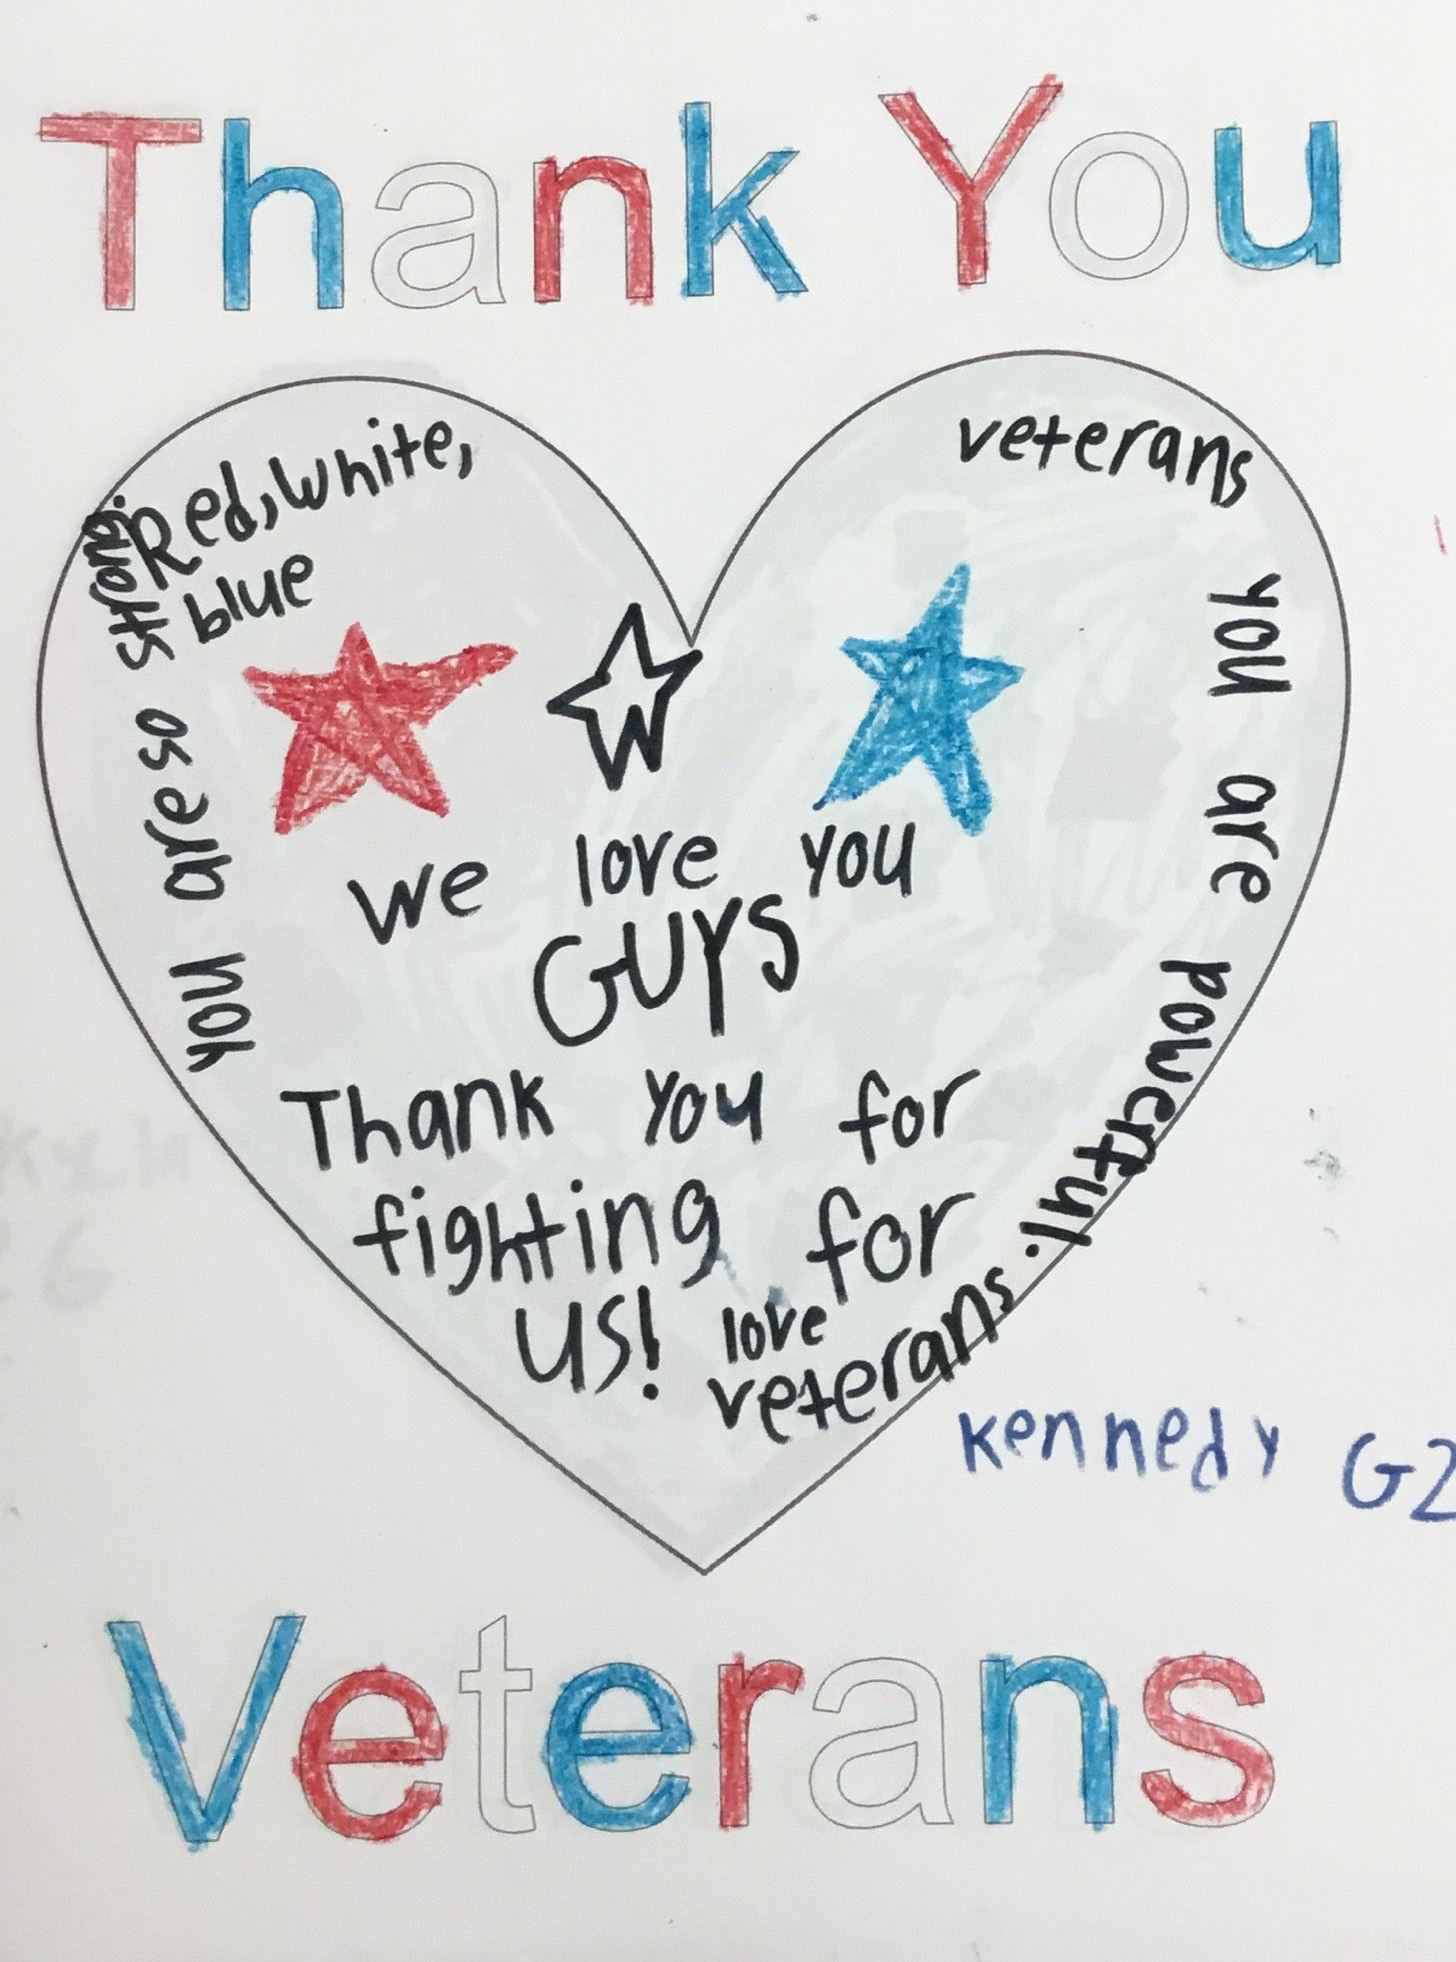 Thank You
Red, white,
blue
you are so strong.
veterans you are powerful.
we love you
GUYS
Thank you for
fighting for
us! love
veterans
Kennedy G2
Veterans